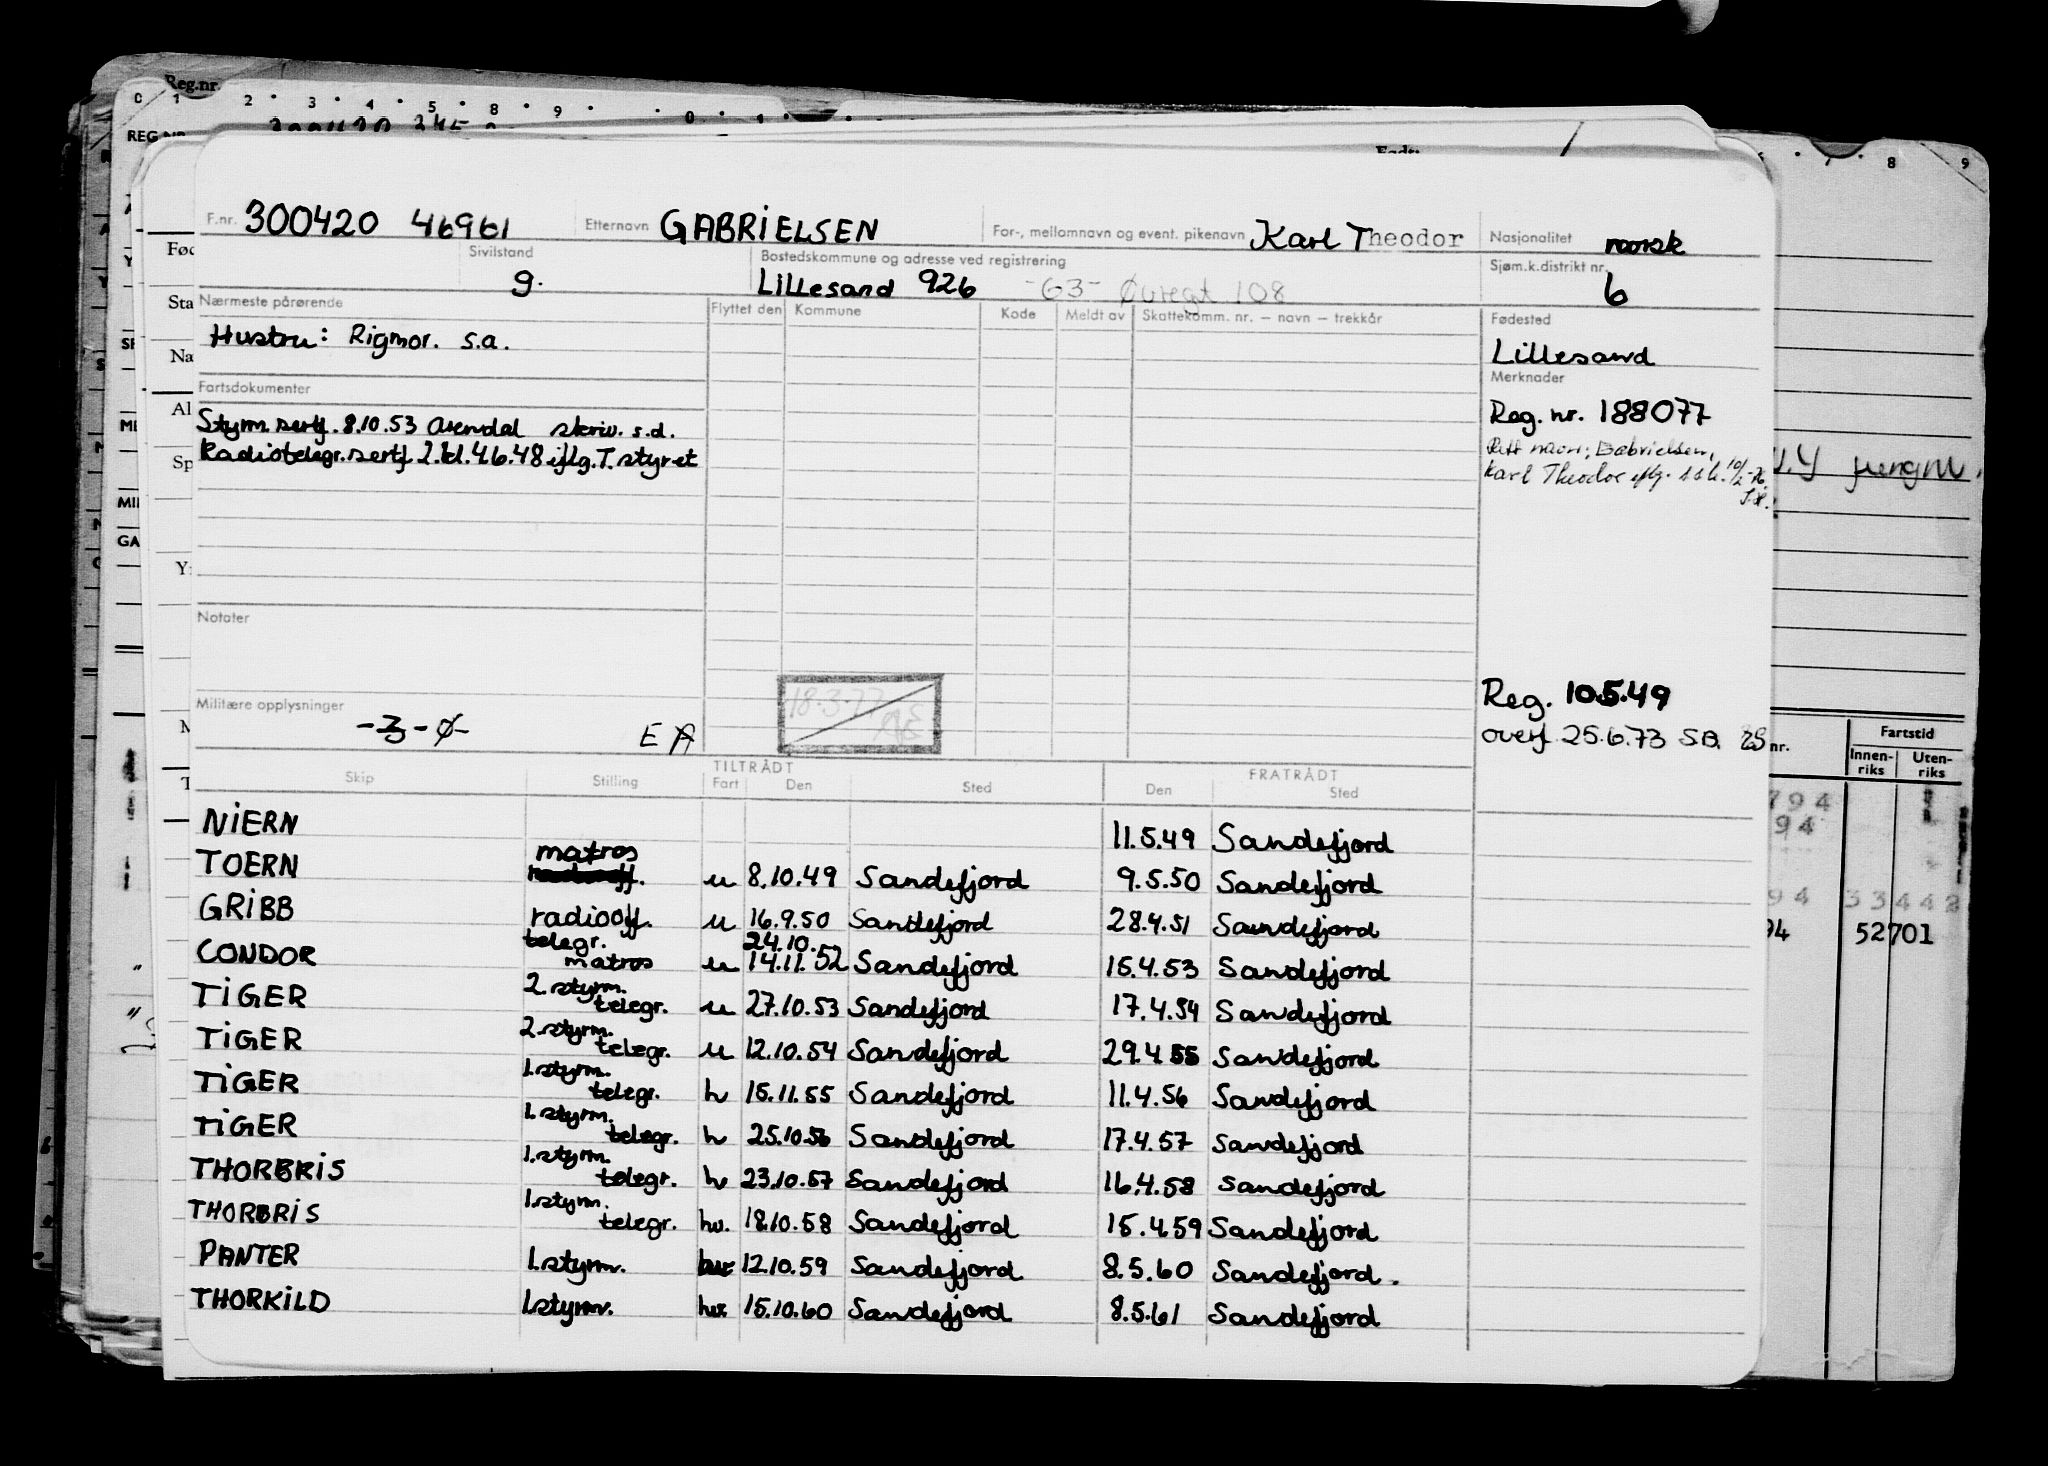 Reg.nr.
0 1 2 3 4 5 8 9 0 1 7 8 9
REG.NR.
Født:
F.nr. 300420 46961 Etternavn GABRIELSEN For-, mellomnavn og event. pikenavn Karl Theodor Nasjonalitet norsk
Sivilstand g. Bostedskommune og adresse ved registrering Lillesand 926 -63- Øvregt 108 Sjøm.k.distrikt nr. 6
Nærmeste pårørende Flyttet den Kommune Kode Meldt av Skattekomm. nr. – navn – trekkår Fødested
Hustru: Rigmor. s.a. Lillesand
Fartsdokumenter Merknader
Styrm.sertf. 8.10.53 Arendal skriv. s.d. Reg. nr. 188077
Radiotelegr.sertf. 2.kl.4.6.48 iflg.T.styret
Rett navn: Gabrielsen,
Karl Theodor iflg. s s k. 10/2-76.
Notater
Reg. 10.5.49
Militære opplysninger -3-Ø- E A 18.3.77
overf 25.6.73 S.B.
Fartstid
Innen-riks Uten-riks
TILTRÅDT FRATRÅDT
Skip Stilling Fart Den Sted Den Sted
NIERN 11.5.49 Sandefjord
TOERN matros u 8.10.49 Sandefjord 9.5.50 Sandefjord
GRIBB radiooff. u 16.9.50 Sandefjord 28.4.51 Sandefjord
CONDOR telegr. matros u 24.10. 14.11.52 Sandefjord 15.4.53 Sandefjord
TIGER 2.styrm. telegr. u 27.10.53 Sandefjord 17.4.54 Sandefjord
TIGER 2.styrm. telegr. u 12.10.54 Sandefjord 29.4.55 Sandefjord
TIGER 1.styrm. telegr. h 15.11.55 Sandefjord 11.4.56 Sandefjord
TIGER 1.styrm. telegr. h 25.10.56 Sandefjord 17.4.57 Sandefjord
THORBRIS 1.styrm. telegr. h 23.10.57 Sandefjord 16.4.58 Sandefjord
THORBRIS 1.styrm. telegr. hv. 18.10.58 Sandefjord 15.4.59 Sandefjord
PANTER 1.styrm. 12.10.59 Sandefjord 8.5.60 Sandefjord.
THORKILD 1.styrm. 15.10.60 Sandefjord 8.5.61 Sandefjord
794
94
94 33442
94 52701